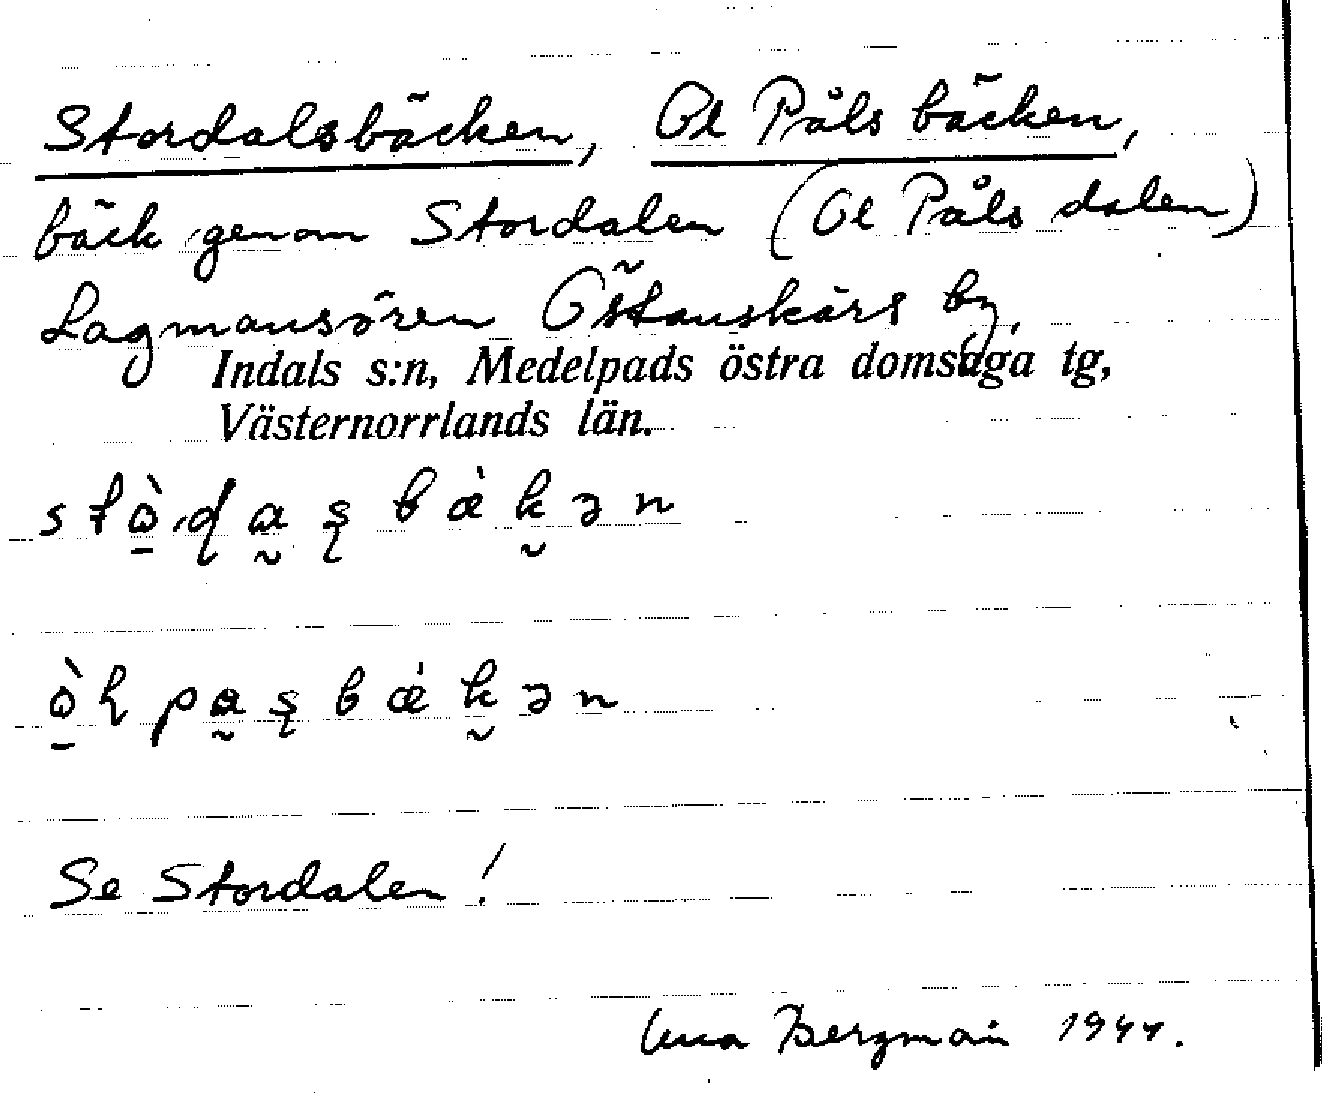 Stordalsbäcken, Ol Påls bäcken,
bäck genom Stordalen (Ol Påls dalen)
Lagmansören Östanskärs by,
Indals s:n, Medelpads östra domsaga tg,
Västernorrlands län.
Se Stordalen!
Bergman 1944.